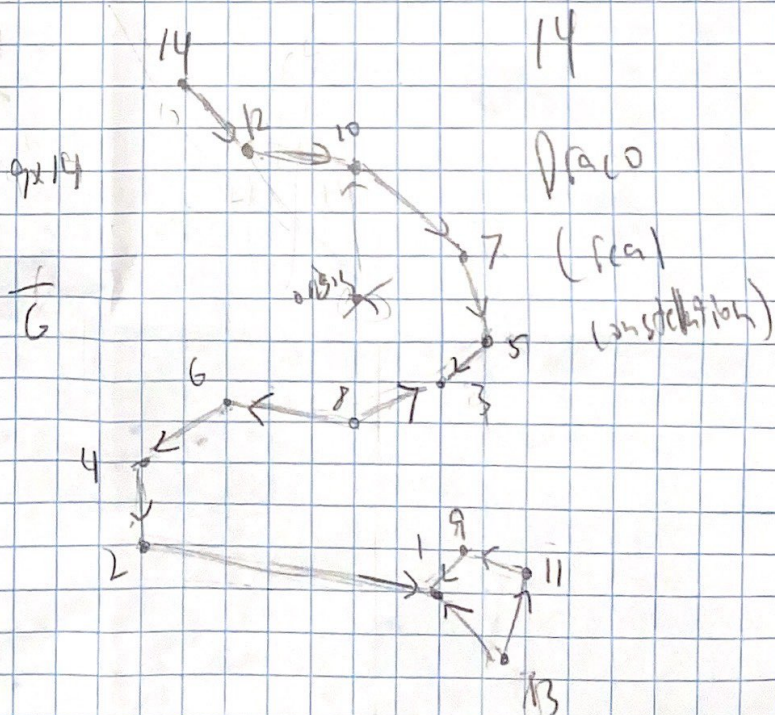 14
14
12
10
9x14
Draco
7
(real
origin
1
6
constellation)
5
3
6
8
4
9
1
11
2
13